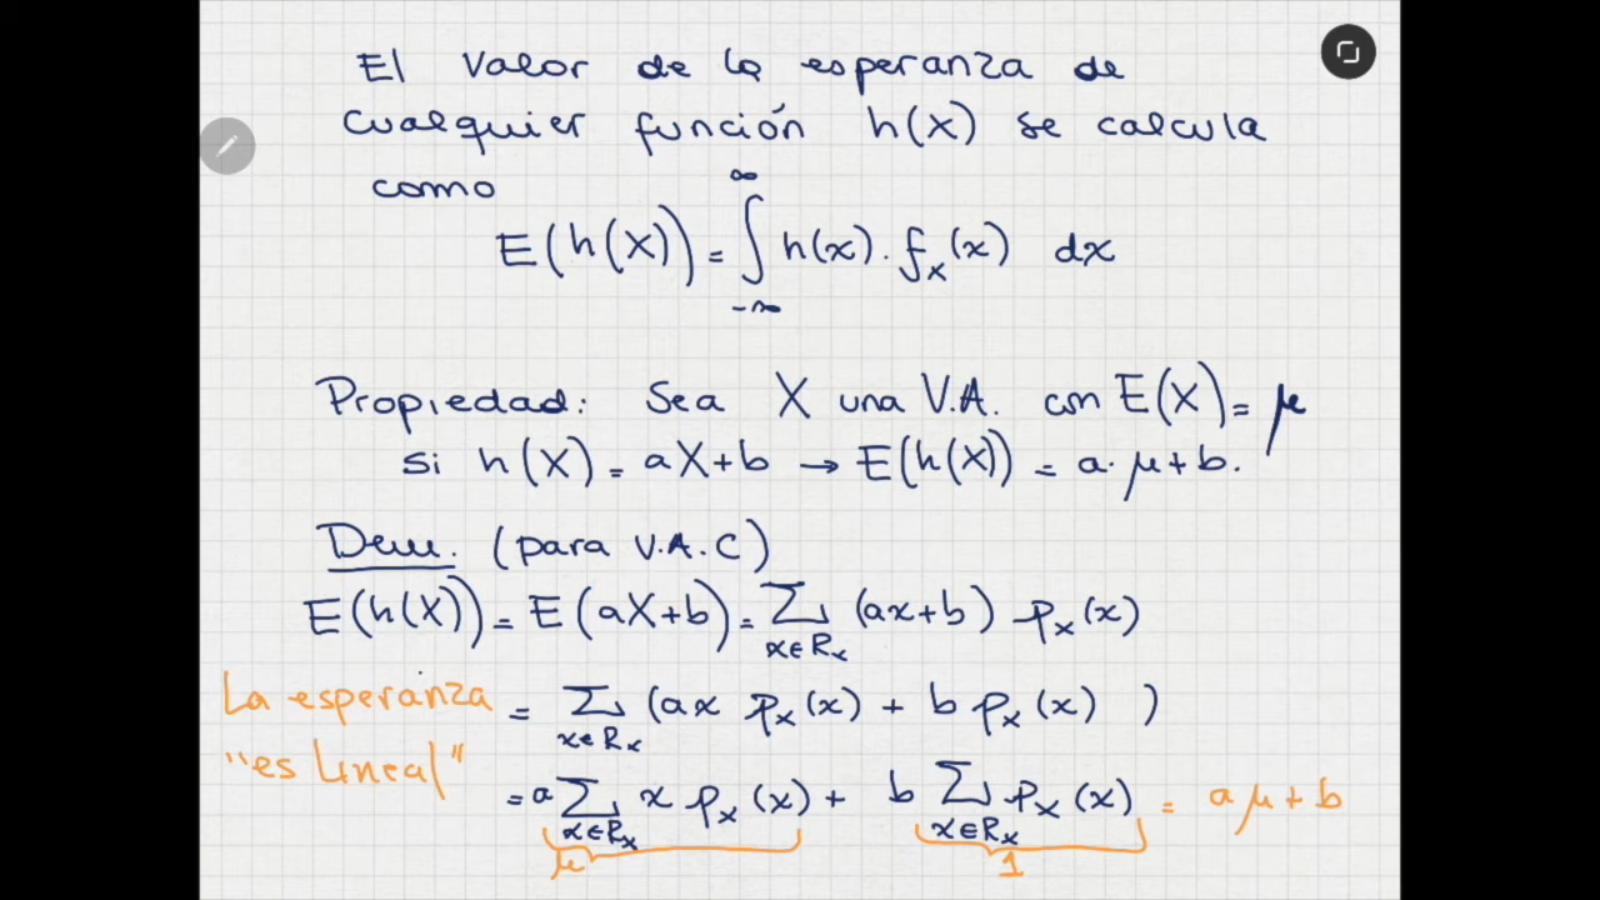 El valor de la esperanza de
cualquier función h(X) se calcula
como
E(h(X)) = ∫_{-∞}^{∞} h(x) · f_X(x) dx
Propiedad: Sea X una V.A. con E(X) = μ
si h(X) = aX+b → E(h(X)) = a·μ + b.
Dem. (para V.A.C)
E(h(X)) = E(aX+b) = Σ_{x∈R_X} (ax+b) p_X(x)
La esperanza
"es lineal"
= Σ_{x∈R_X} (ax p_X(x) + b p_X(x) )
= a Σ_{x∈R_X} x p_X(x) + b Σ_{x∈R_X} p_X(x) = aμ + b
μ 1